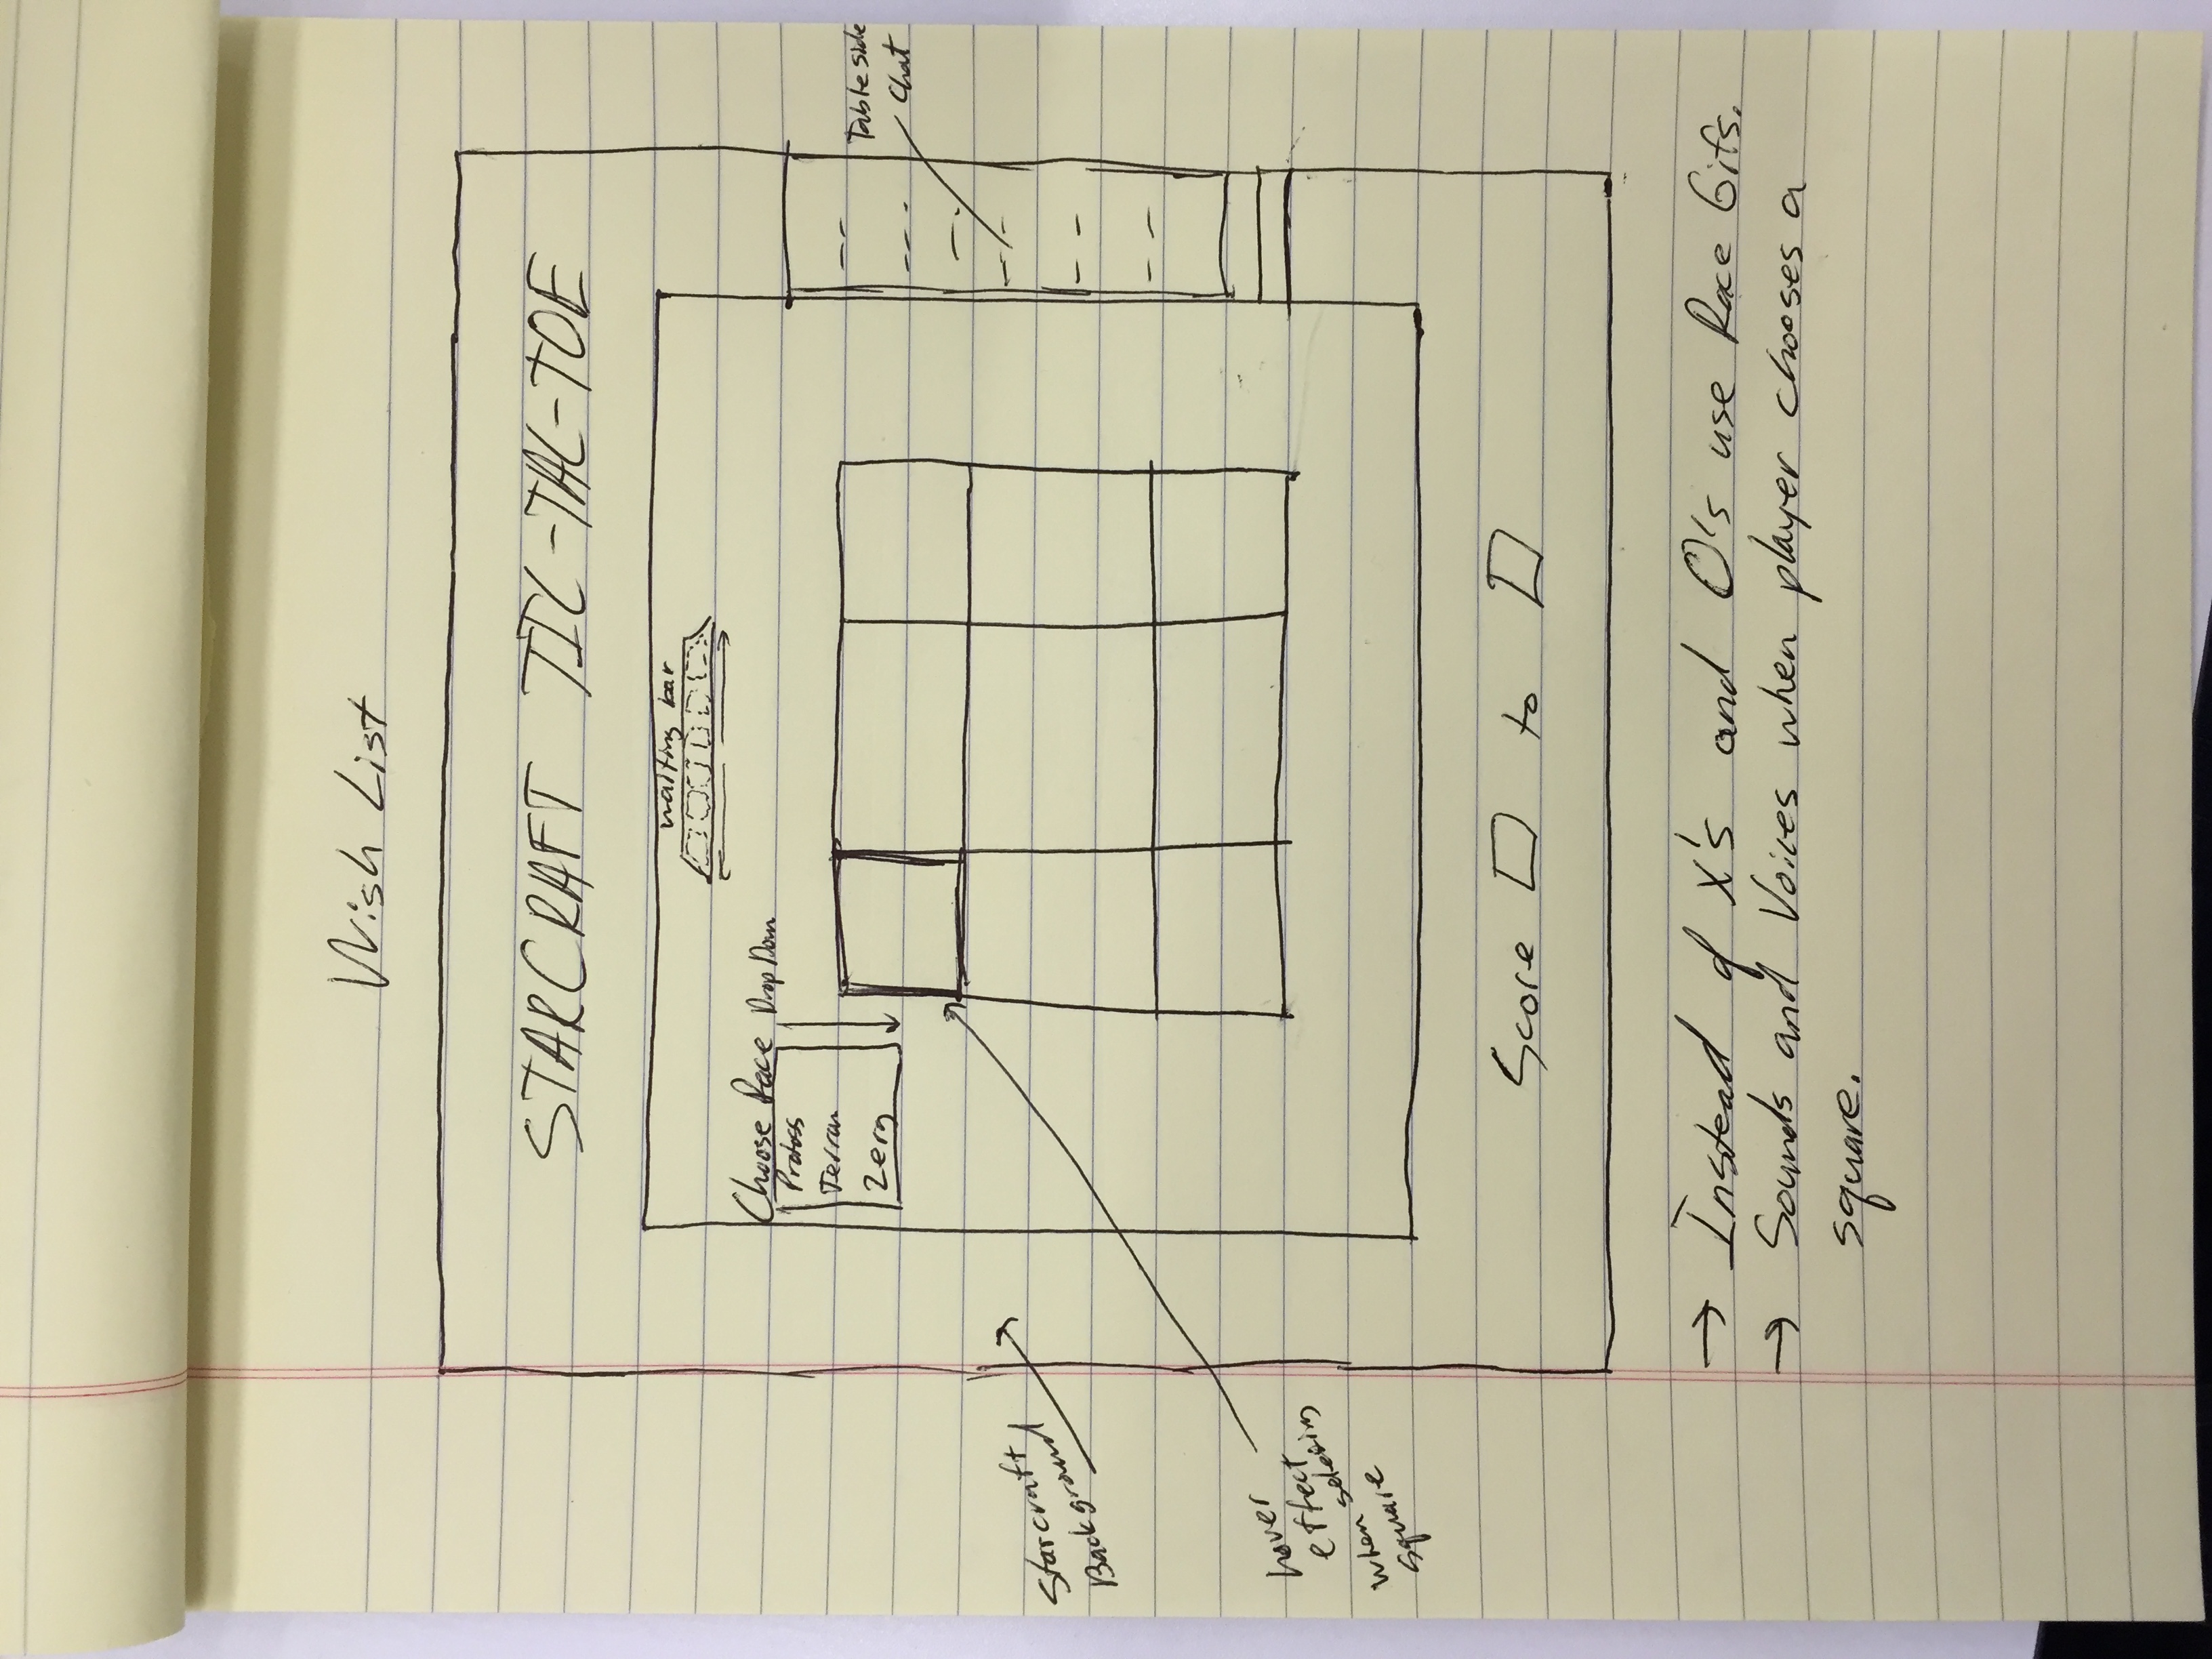 Wish List
STARCRAFT TIC-TAC-TOE
waiting bar
Choose Race Drop Down
Protoss
Terran
Zerg
Table side
Chat
Starcraft
Background
hover
effect
when selecting
square
Score to
→ Instead of X's and O's use Race Gifs.
→ Sounds and Voices when player chooses a
square.